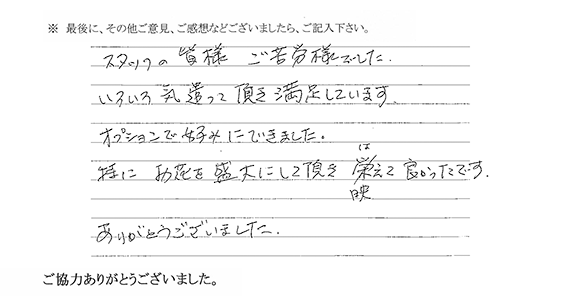 ※ 最後に、その他ご意見、ご感想などございましたら、ご記入下さい。
スタッフの 皆様 ご苦労様でした.
いろいろ 気遣って 頂き 満足しています.
オプションで好みにできました。
は
特に お花を 盛大にして頂き 栄えて 良かったです.
映
ありがとうございました.
ご協力ありがとうございました。